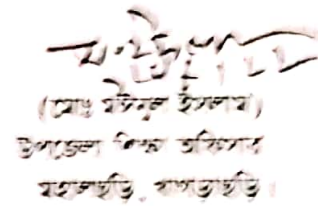 (মোঃ মঈনুল ইসলাম)
উপজেলা শিক্ষা অফিসার
মহালছড়ি, খাগড়াছড়ি।